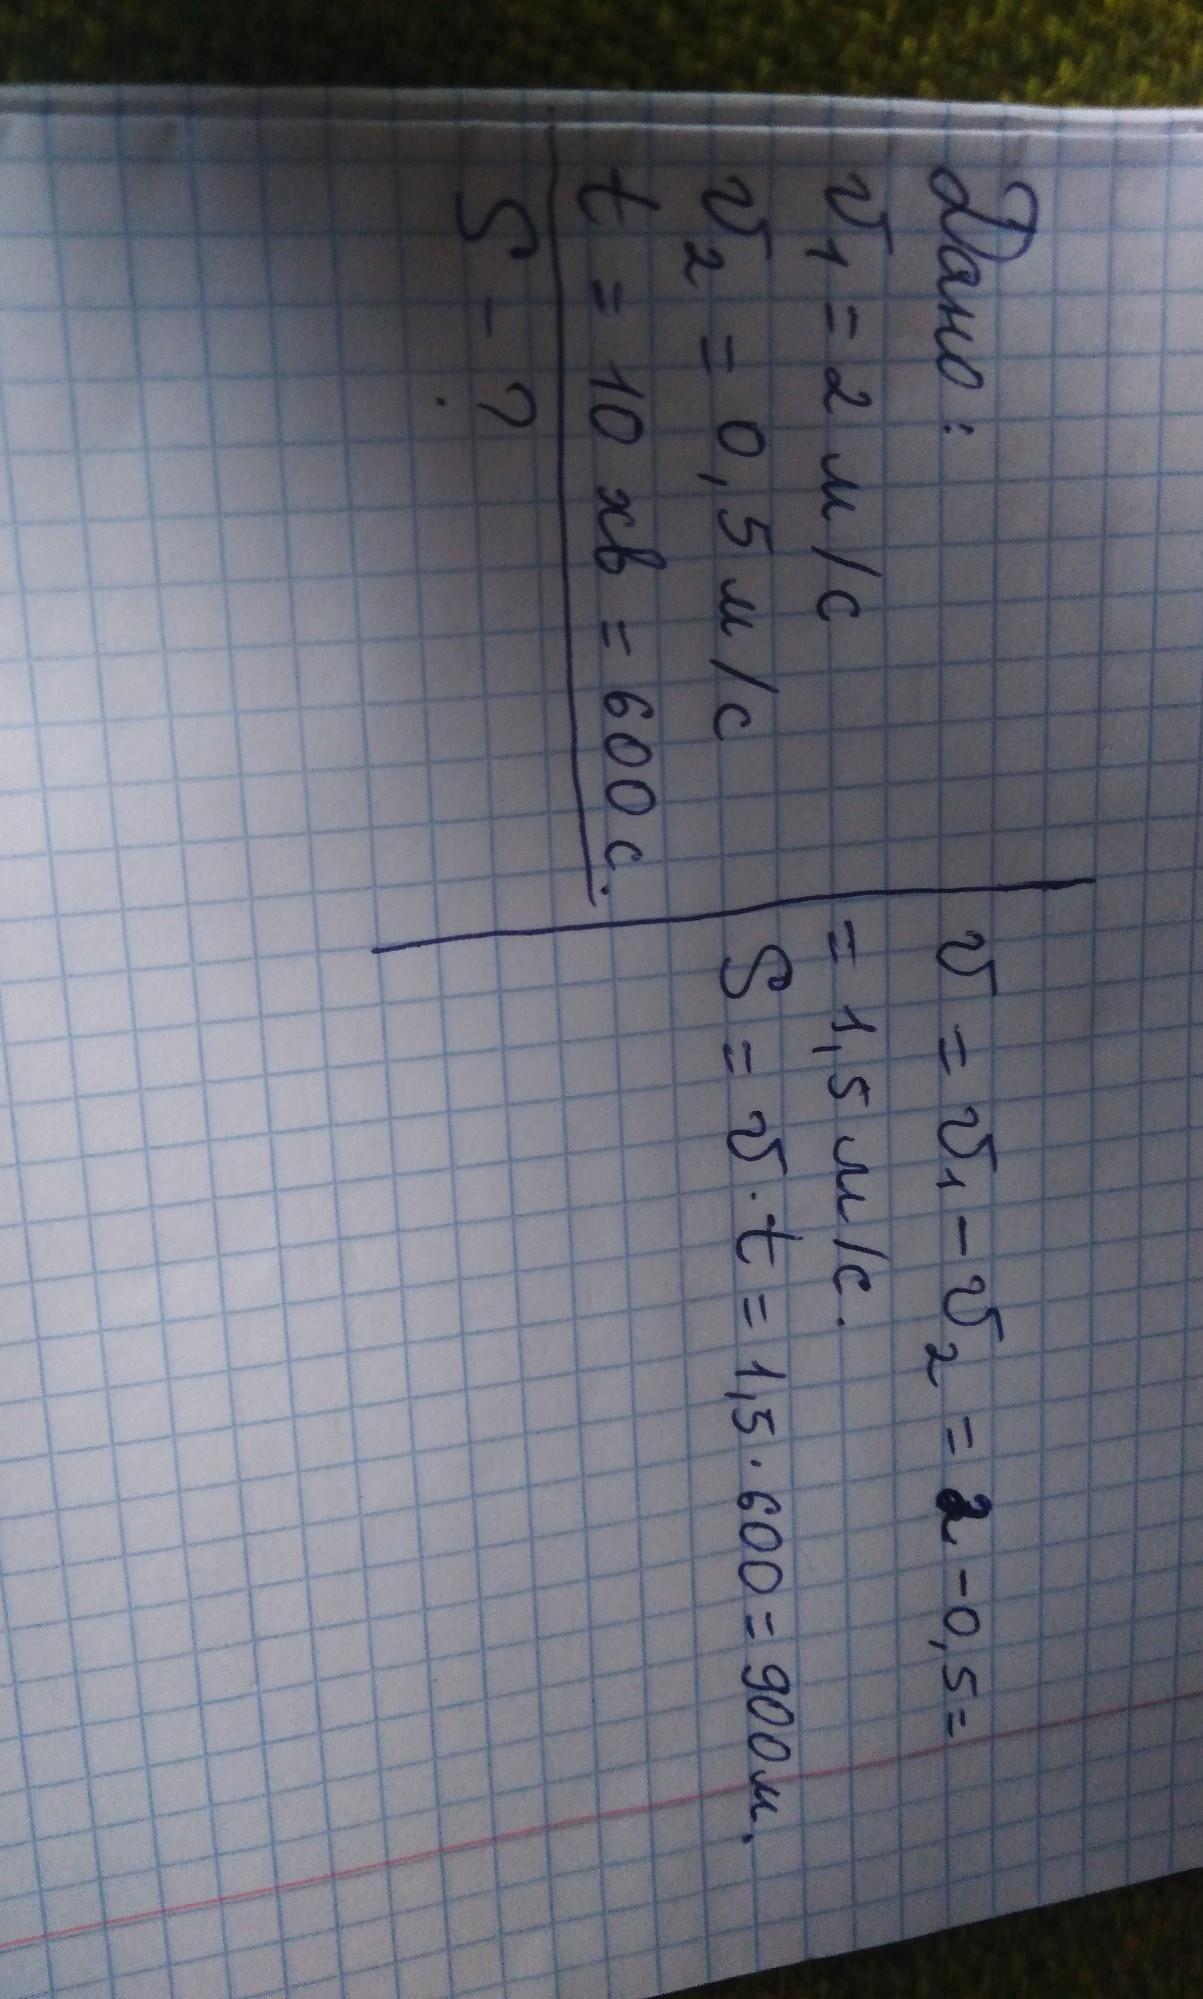 Дано:
v₁ = 2 м/с
v₂ = 0,5 м/с
t = 10 хв = 600 с.
S - ?
v = v₁ - v₂ = 2 - 0,5 =
= 1,5 м/с.
S = v · t = 1,5 · 600 = 900 м.